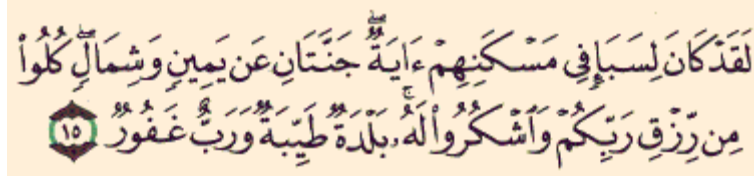 لَقَدۡ كَانَ لِسَبَإٖ فِي مَسۡكَنِهِمۡ ءَايَةٞۖ جَنَّتَانِ عَن يَمِينٖ وَشِمَالٖۖ كُلُواْ
مِن رِّزۡقِ رَبِّكُمۡ وَٱشۡكُرُواْ لَهُۥۚ بَلۡدَةٞ طَيِّبَةٞ وَرَبٌّ غَفُورٞ ١٥